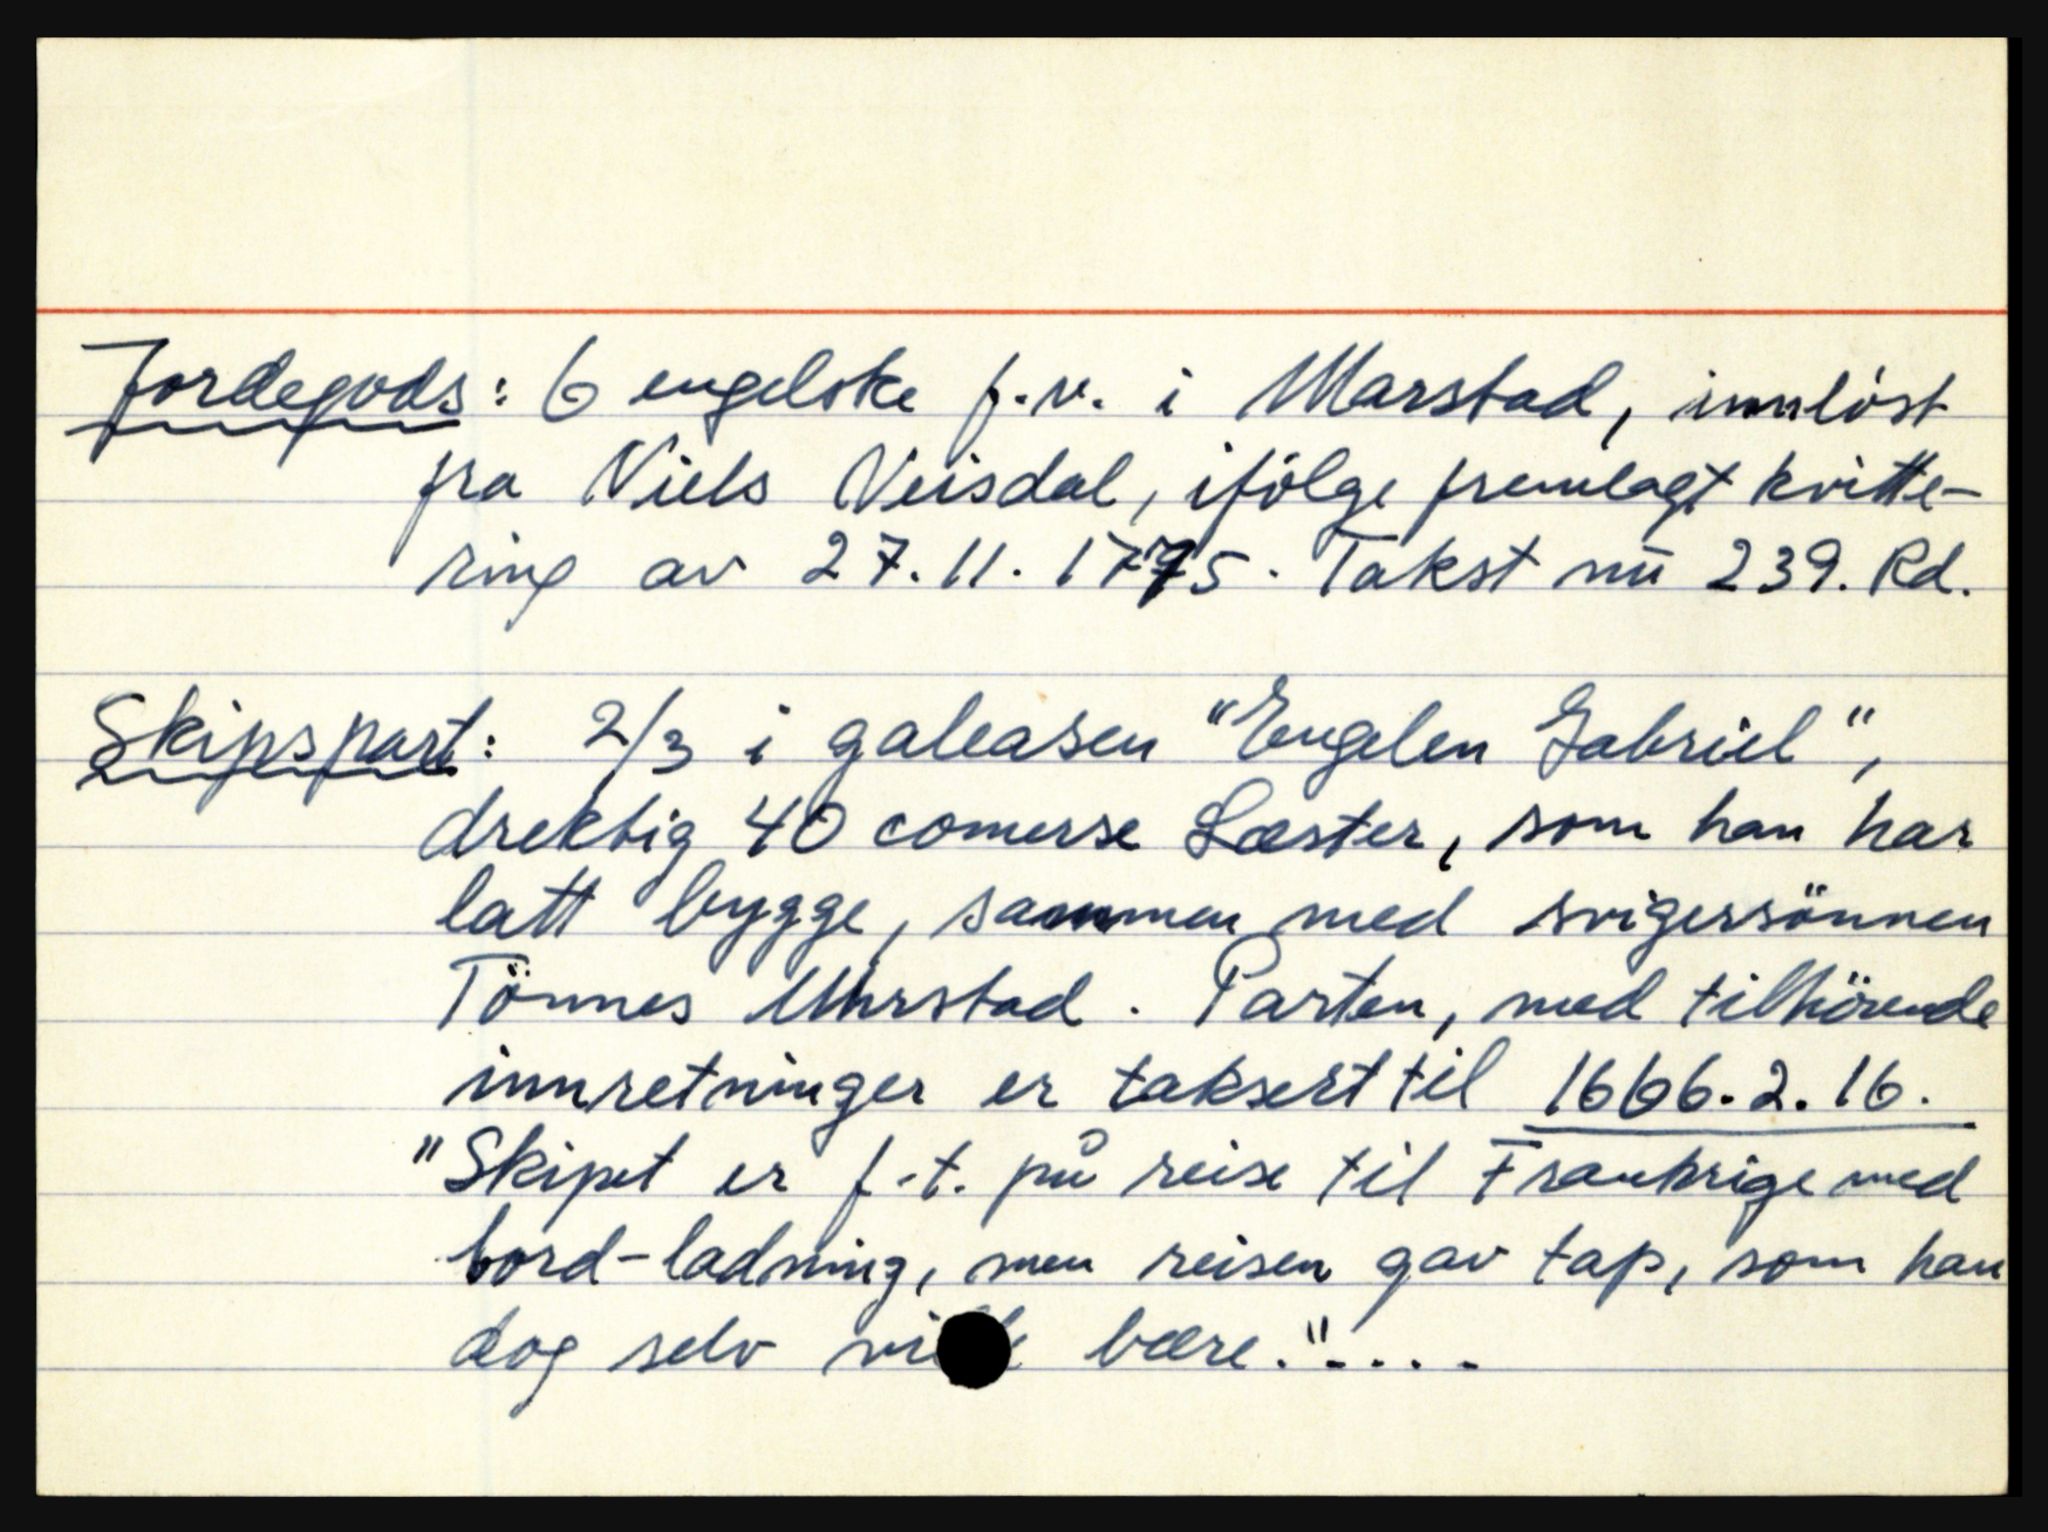 Jordegods: 6 engelske f.v. i Marstad, innløst
fra Niels Veisdal, ifølge fremlagt kvitte-
ring av 27.11.1775. Takst nu 239. Rd.
Skipspart: 2/3 i galeasen "Engelen Gabriel",
drektig 40 comerse Læster, som han har
latt bygge, sammen med svigersönnen
Tönnes Uhrstad. Parten, med tilhörende
innretninger er taksert til 1666.2.16.
"Skipet er f.t. på reise til Frankrige med
bord-ladning, men reisen gav tap, som han
dog selv bære."....